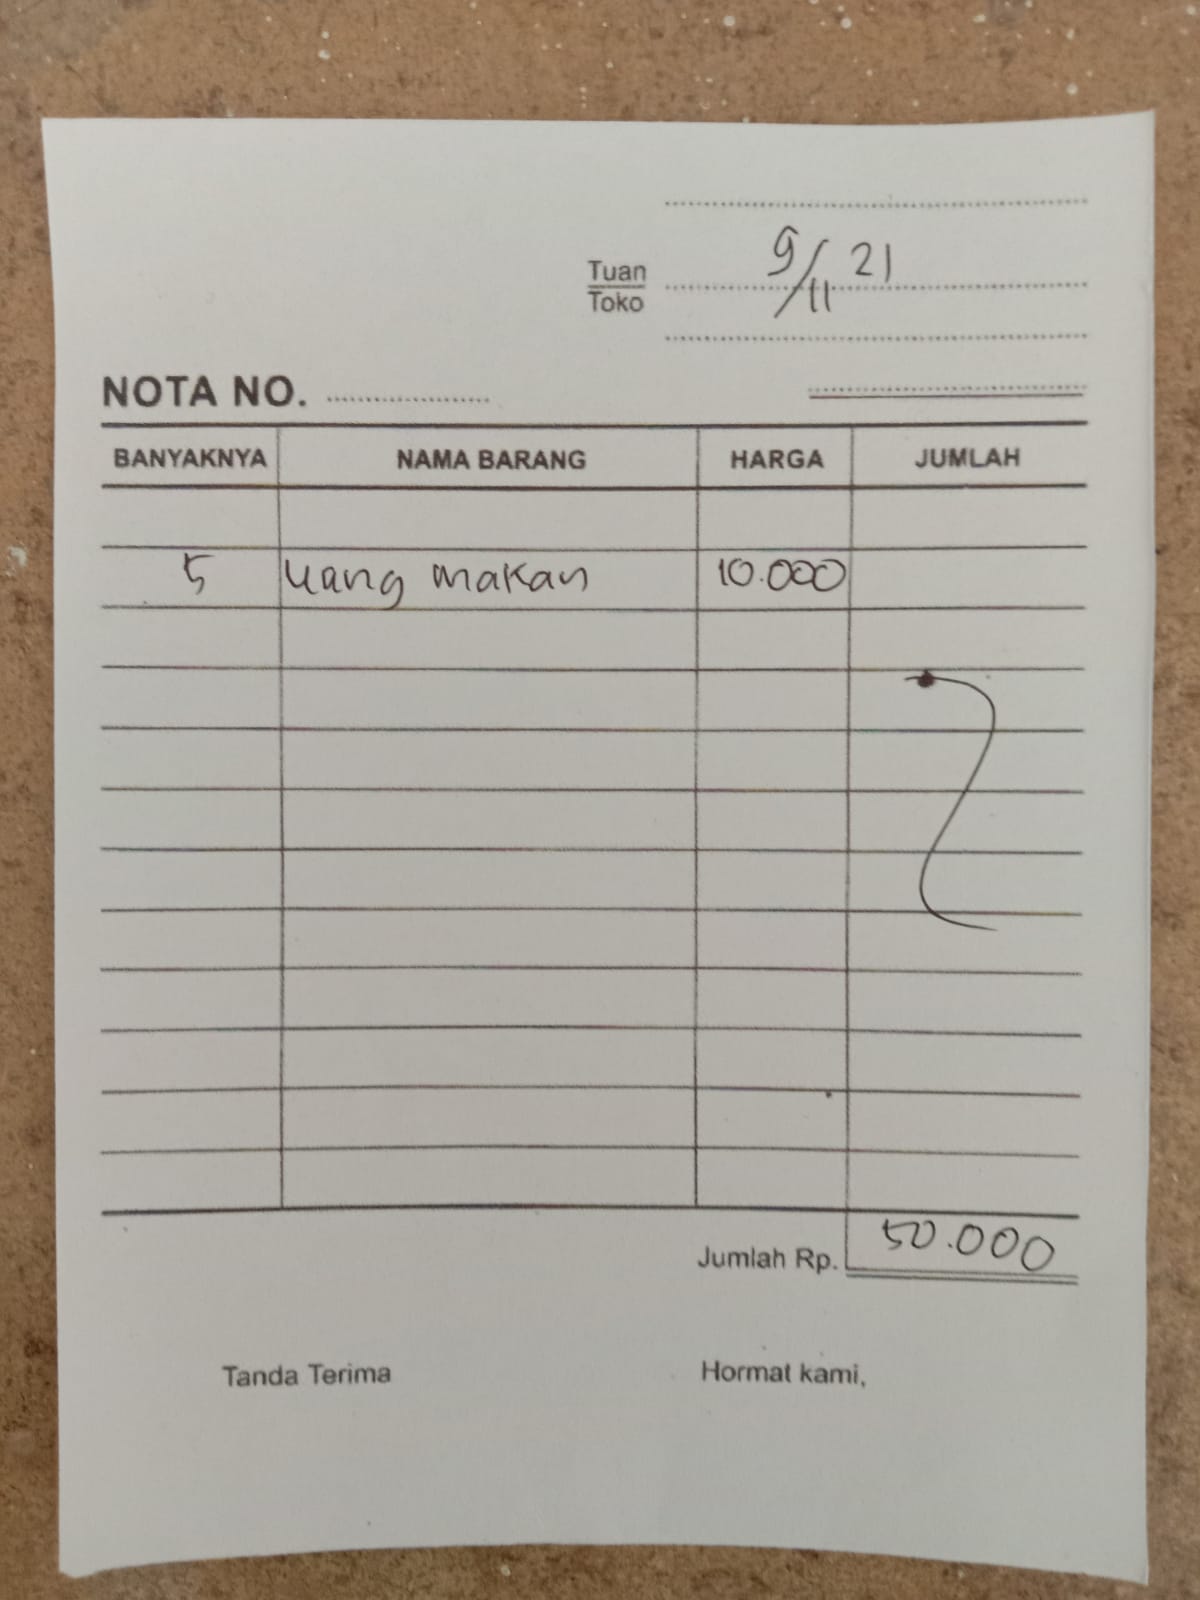 9/11 21
Tuan
Toko
NOTA NO.
BANYAKNYA NAMA BARANG HARGA JUMLAH
5 uang makan 10.000
Jumlah Rp. 50.000
Tanda Terima Hormat kami,